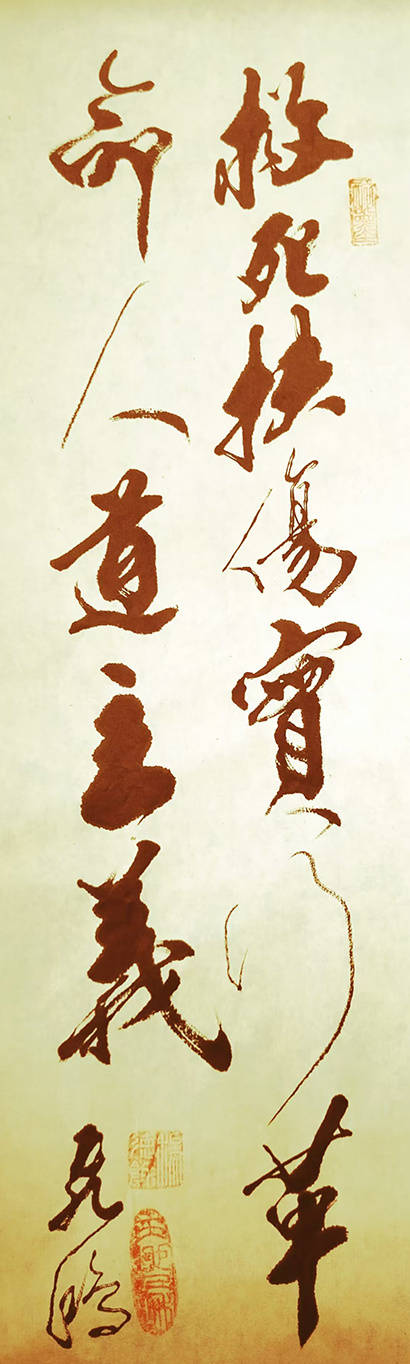 救死扶傷實行革
命人道主義